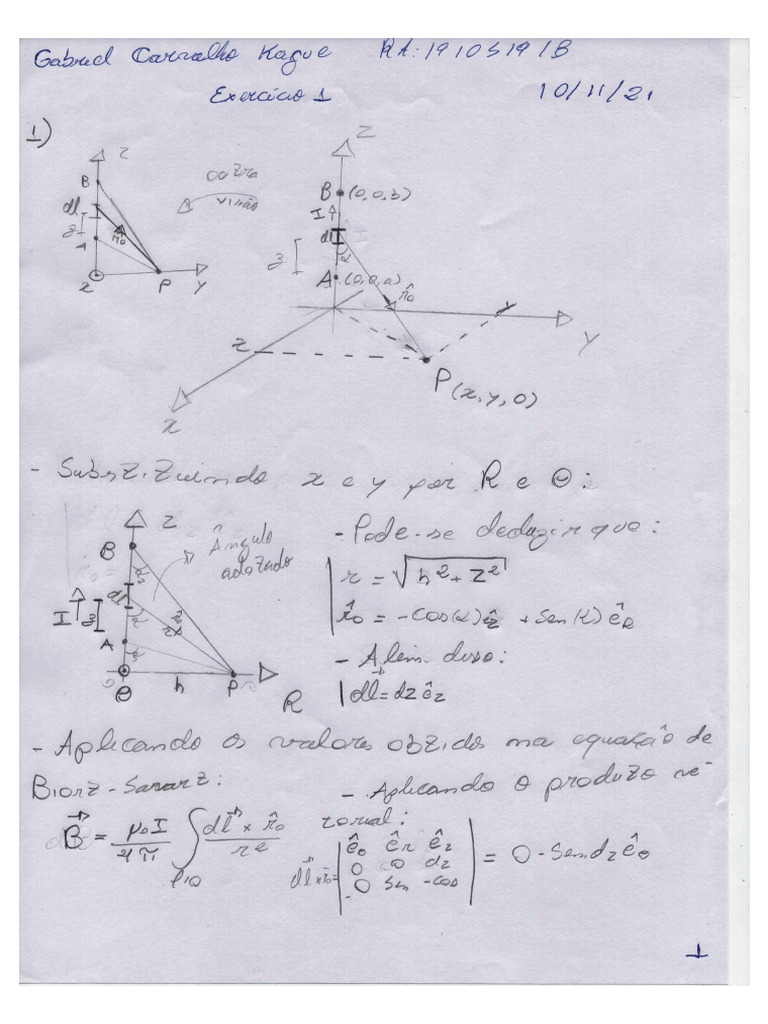 Gabriel Carvalho Kague RA: 1910519/B
Exercício 1 10/11/21
1)
z
B
dl
z
A
r̂₀
x
P
y
outra visão
z
B (0,0,b)
I ↑
dl
z
α
A (0,0,a)
r̂₀
y
x
y
x
P (x,y,0)
- Substituindo x e y por R e θ:
z
B
α₂
Ângulo adotado
dl
α
I ↑ z
r̂₀
A
α₁
θ
h
P
R
- Pode-se deduzir que:
r = √(h² + z²)
r̂₀ = -cos(α)ê_z + sen(α) ê_R
- Além disso:
dl⃗ = dz ê_z
- Aplicando os valores obtidos na equação de
Biot-Savart:
B⃗ = μ₀I/4π ∫_fio dl⃗ × r̂₀ / r²
- Aplicando o produto ve-
torial:
dl⃗ × r̂₀ = | ê_θ ê_R ê_z |
| 0 0 dz |
| 0 sen -cos |
= 0 - sen dz ê_θ
1